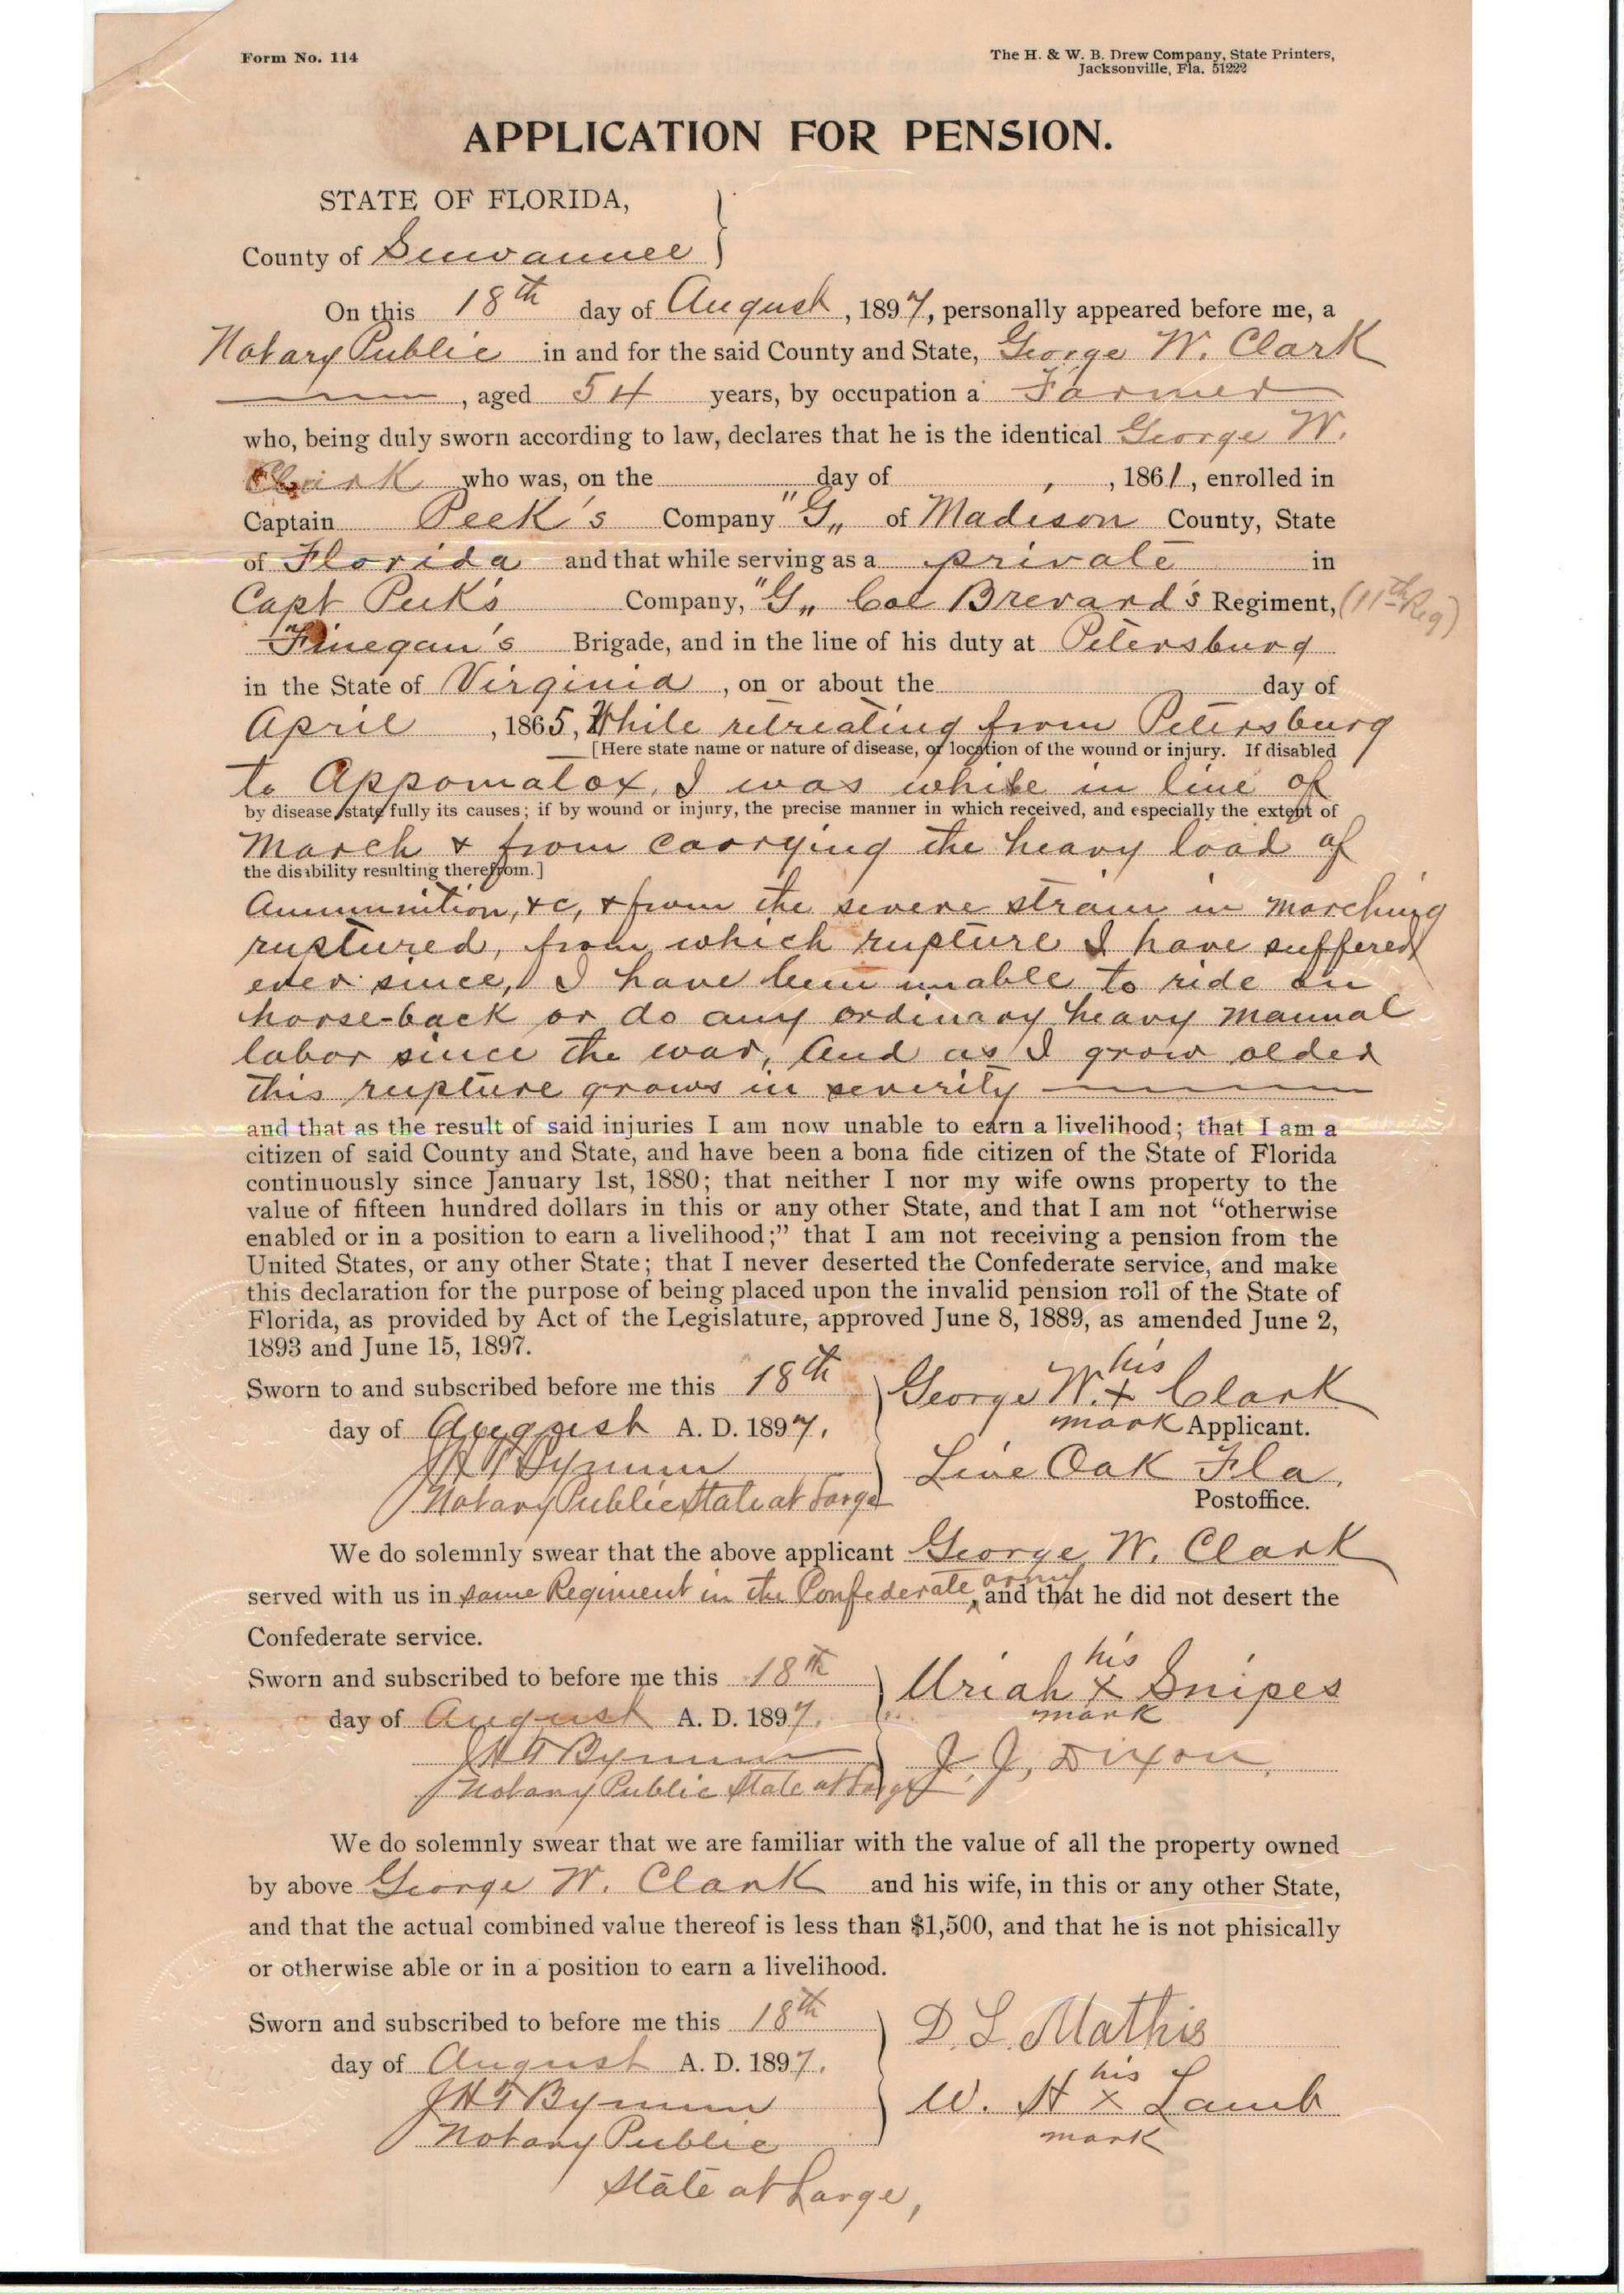 Form No. 114
The H. & W. B. Drew Company, State Printers,
Jacksonville, Fla. 51222
APPLICATION FOR PENSION.
STATE OF FLORIDA,
County of Suwannee
On this 18th day of August, 1897, personally appeared before me, a
Notary Public in and for the said County and State, George W. Clark
, aged 54 years, by occupation a Farmer
who, being duly sworn according to law, declares that he is the identical George W.
Clark who was, on the day of , 1861, enrolled in
Captain Peek's Company "G„ of Madison County, State
of Florida and that while serving as a private in
Capt Peek's Company, "G„ Col Brevard's Regiment, (11th Reg)
Finegan's Brigade, and in the line of his duty at Petersburg
in the State of Virginia, on or about the day of
April, 1865, While retreating from Petersburg
[Here state name or nature of disease, or location of the wound or injury. If disabled
to Appomatox, I was while in line of
by disease, state fully its causes; if by wound or injury, the precise manner in which received, and especially the extent of
March & from carrying the heavy load of
the disability resulting therefrom.]
Ammunition, &c, & from the severe strain in marching
ruptured, from which rupture I have suffered
ever since, I have been unable to ride on
horse-back or do any ordinary heavy manual
labor since the war, And as I grow older
this rupture grows in severity
and that as the result of said injuries I am now unable to earn a livelihood; that I am a
citizen of said County and State, and have been a bona fide citizen of the State of Florida
continuously since January 1st, 1880; that neither I nor my wife owns property to the
value of fifteen hundred dollars in this or any other State, and that I am not "otherwise
enabled or in a position to earn a livelihood;" that I am not receiving a pension from the
United States, or any other State; that I never deserted the Confederate service, and make
this declaration for the purpose of being placed upon the invalid pension roll of the State of
Florida, as provided by Act of the Legislature, approved June 8, 1889, as amended June 2,
1893 and June 15, 1897.
Sworn to and subscribed before me this 18th
day of August A. D. 1897.
J H T Bynum
Notary Public State at Large
his
George W. x Clark
mark Applicant.
Live Oak Fla.
Postoffice.
We do solemnly swear that the above applicant George W. Clark
served with us in same Regiment in the Confederate army, and that he did not desert the
Confederate service.
Sworn and subscribed to before me this 18th
day of August A. D. 1897.
J H T Bynum
Notary Public State at Large
his
Uriah x Snipes
mark
J. J. Dixon.
We do solemnly swear that we are familiar with the value of all the property owned
by above George W. Clark and his wife, in this or any other State,
and that the actual combined value thereof is less than $1,500, and that he is not phisically
or otherwise able or in a position to earn a livelihood.
Sworn and subscribed to before me this 18th
day of August A. D. 1897.
J H T Bynum
Notary Public
State at Large,
D. L. Mathis
his
W. H x Lamb
mark